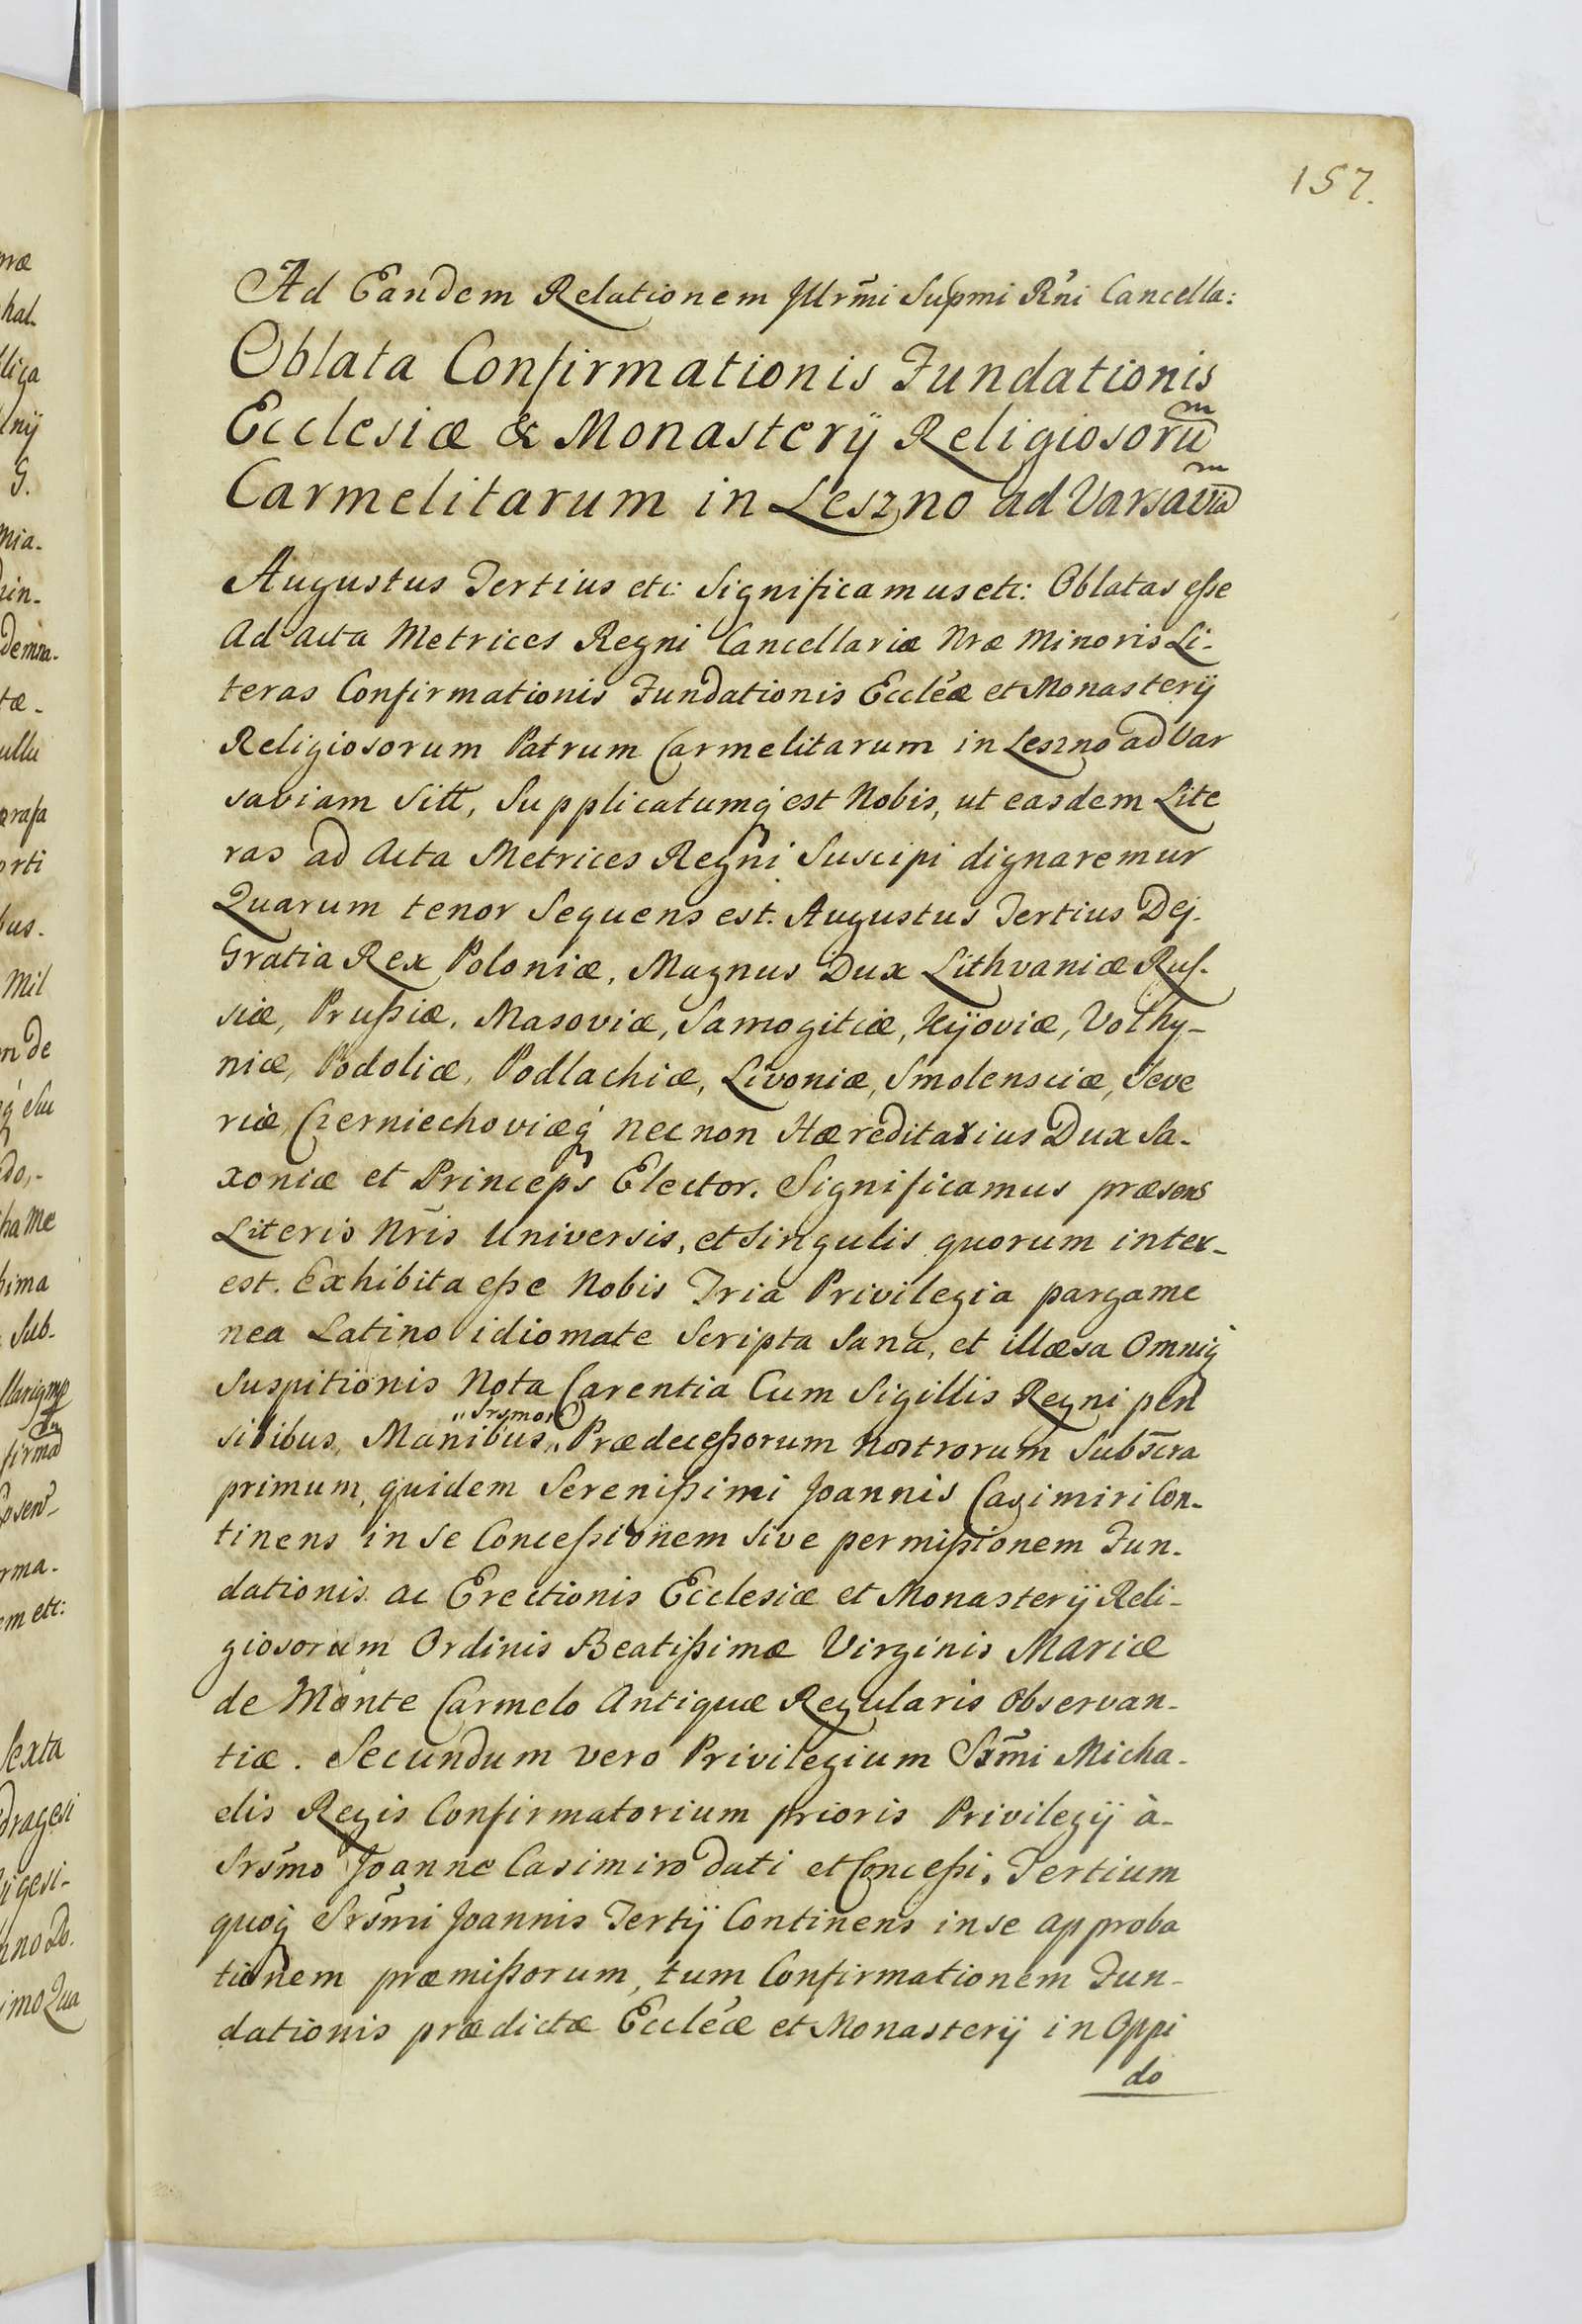 157.
Ad Eandem Relationem Jllr̃mi Supmi Rñi Cancella:
Oblata Confirmationis Fundationis
Ecclesiæ & Monasterij Religiosorum
Carmelitarum in Leszno ad Varsaviam
Augustus Tertius etc: Significamus etc: Oblatas eſse
Ad acta Metrices Regni Cancellariæ Nræ Minoris Li-
teras Confirmationis Fundationis Eccléæ et Monasterij
Religiosorum Patrum Carmelitarum in Leszno ad Var
saviam Sitt, Supplicatumq́ est Nobis, ut easdem Lite
ras ad Acta Metrices Regni Suscipi dignaremur
Quarum tenor Sequens est. Augustus Tertius Dej-
Gratia Rex Poloniæ, Magnus Dux Lithvaniæ Ruſ-
siæ, Pruſsiæ, Masoviæ, Samogitiæ, Kijoviæ, Volhy-
niæ, Podoliæ, Podlachiæ, Livoniæ, Smolensciæ, Seve
riæ, Czerniechoviæq́ nec non Hæreditarius Dux Sa-
xoniæ et Princeps Elector. Significamus præsens
Literis Nr̃is Universis, et Singulis quorum inter-
est. Exhibita eſse Nobis Tria Privilegia pargame
nea Latino idiomate Scripta Sana, et illæsa Omniq́
Suspitionis Nota Carentia Cum Sigillis Regni pen
„Srsmor
silibus, Manibus„ Prædeceſsorum nostrorum Subscra
primum, quidem Sereniſsimi Joannis Casimiri Con-
tinens in Se Conceſsionem Sive permiſsionem Fun-
dationis ac Erectionis Ecclesiæ et Monasterij Reli-
giosorum Ordinis Beatiſsimæ Virginis Mariæ
de Monte Carmelo Antiquæ Regularis Observan-
tiæ. Secundum vero Privilegium Srm̃i Micha-
elis Regis Confirmatorium prioris Privilegij à-
Srs̃mo Joanne Casimiro dati et Conceſsi, Tertium
quoq́ Srs̃mi Joannis Tertij Continens in se approba
tionem præmiſsorum, tum Confirmationem Fun-
dationis prædictæ Eccléæ et Monasterij in Oppi
do